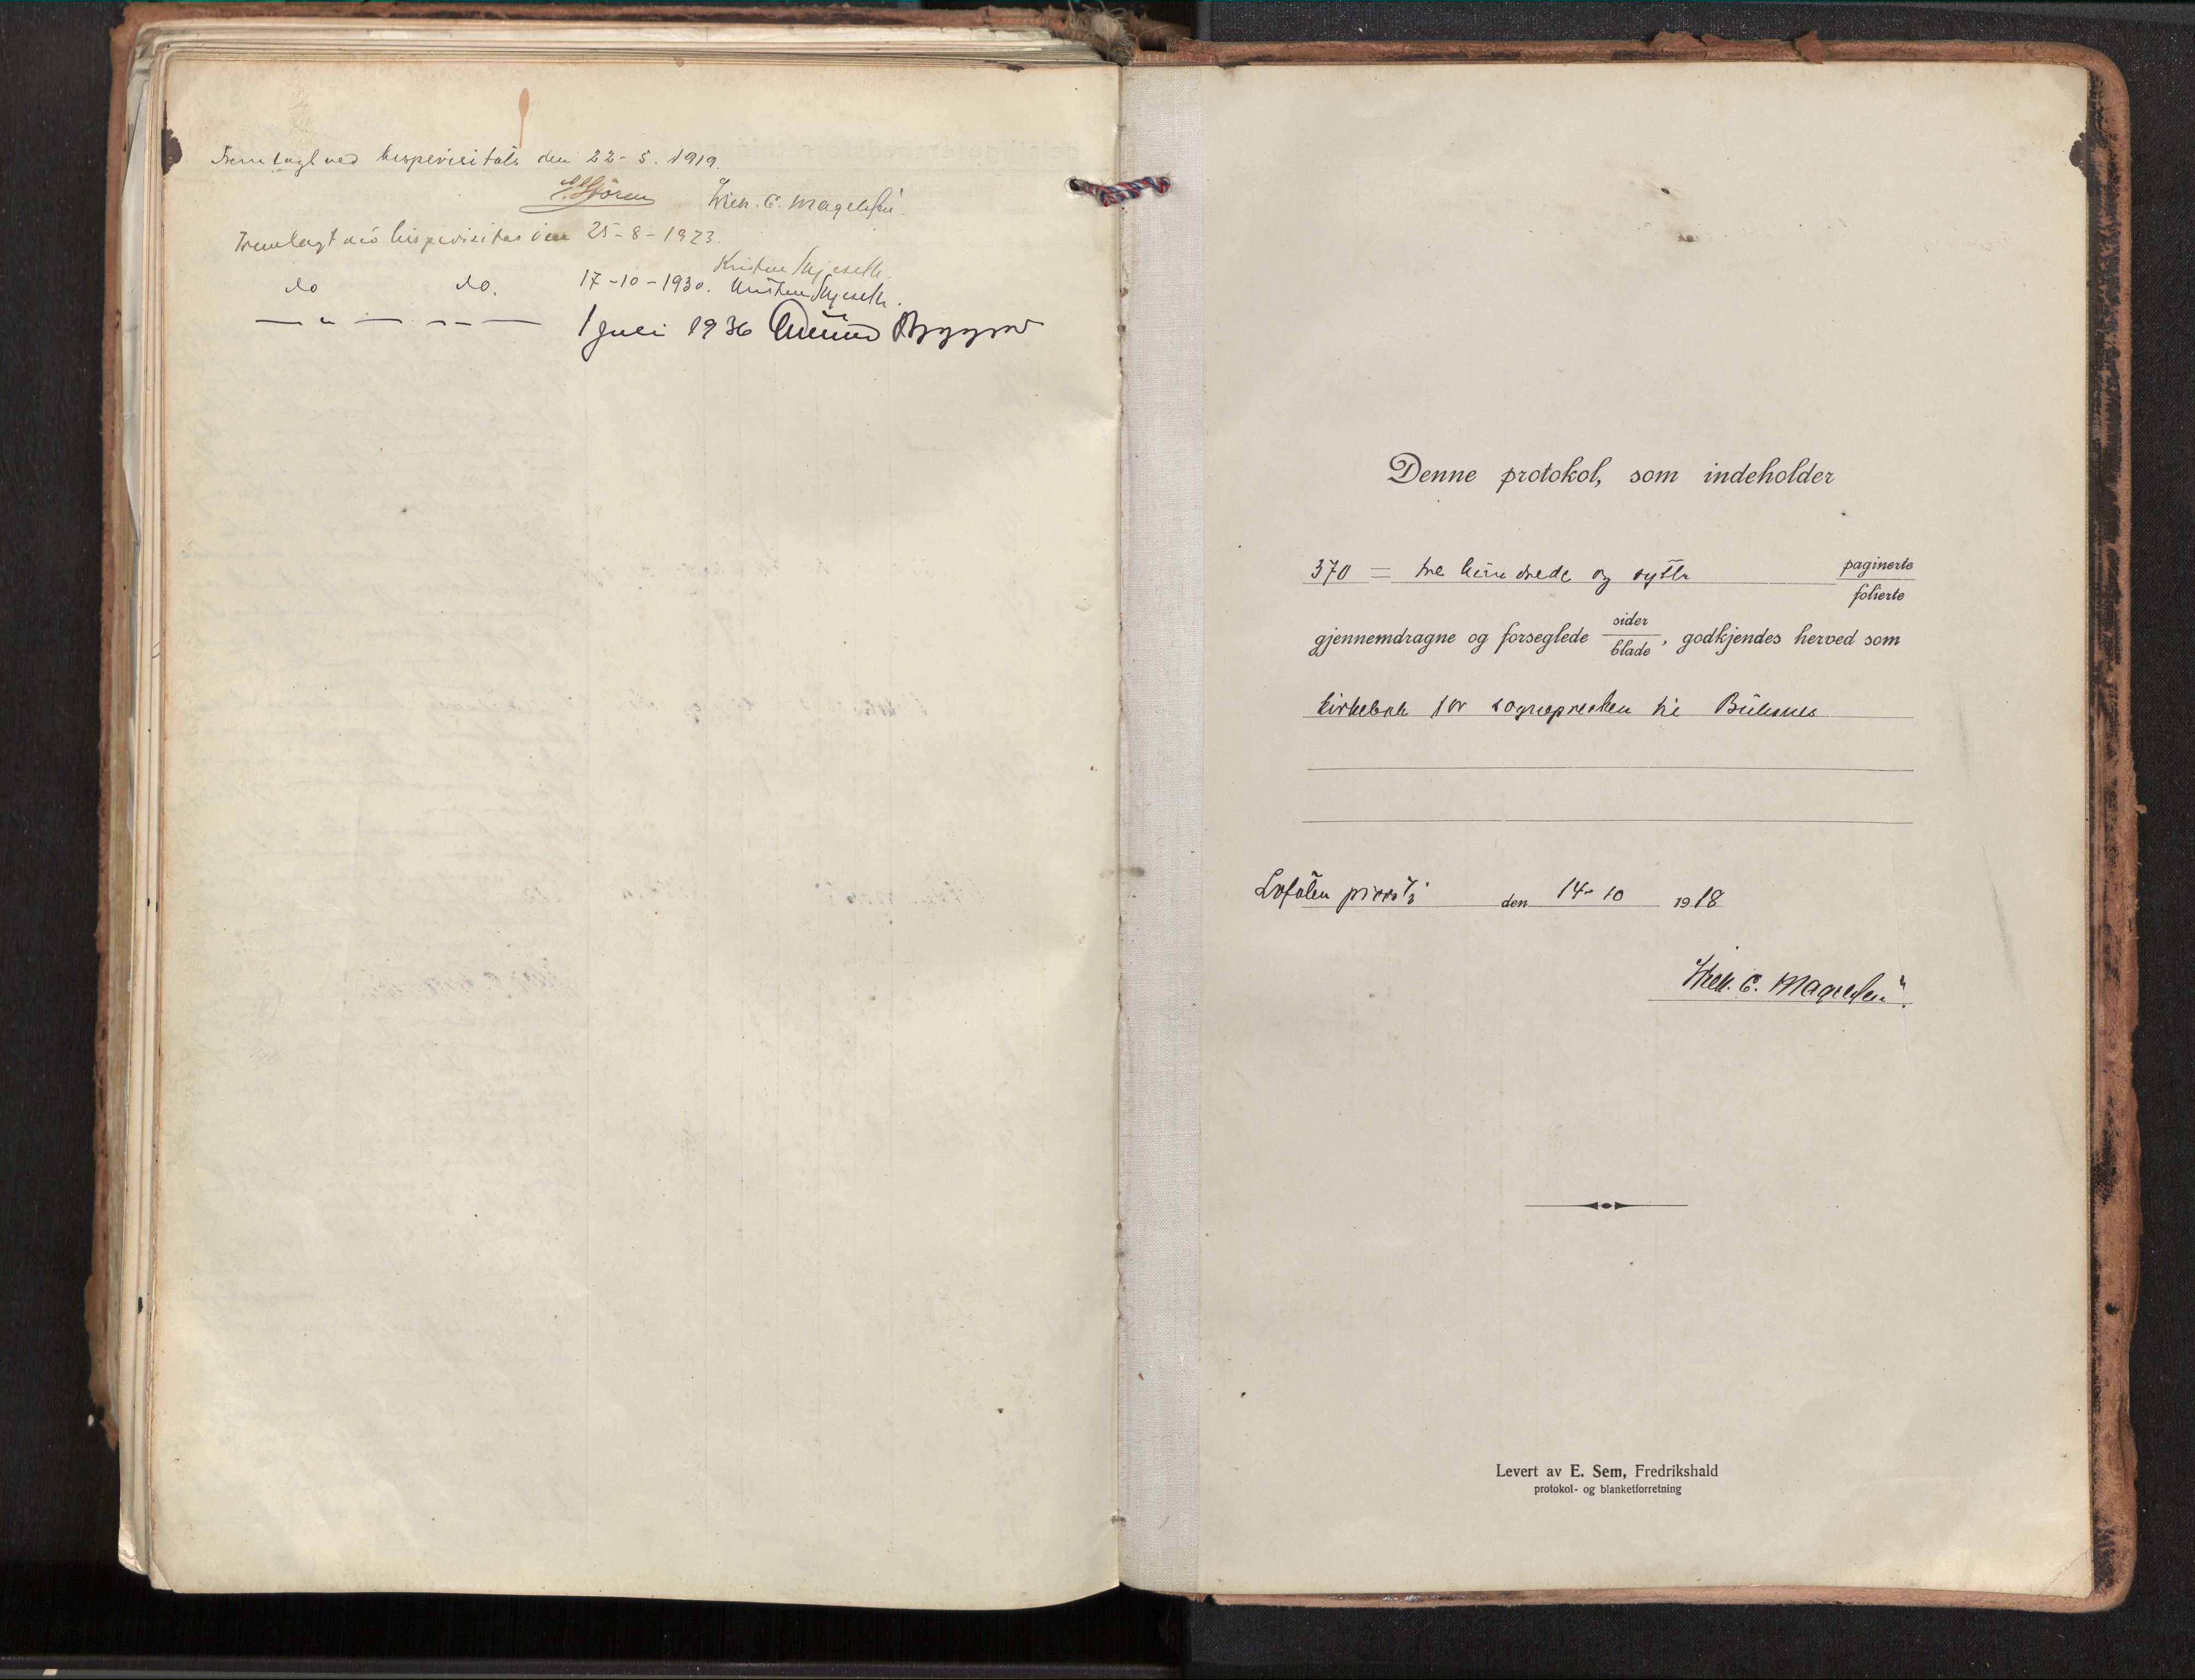 Fremlagt ved bispevisitats den 22-5. 1919.
Wilh. C. Magelssen.
Fremlagt ved bispevisitas den 25-8-1923.
Kristen Skjeseth.
do do. 17-10-1930. Kristen Skjeseth.
— " — — " — 1 juli 1936
Denne protokol, som indeholder
370 = tre hundrede og sytti paginerte
folierte
gjennemdragne og forseglede sider
blade, godkjendes herved som
kirkebok for sognepresten til Buksnes
Lofoten prosti den 14-10 1918
Wilh. C. Magelssen.
Levert av E. Sem, Fredrikshald
protokol- og blanketforretning